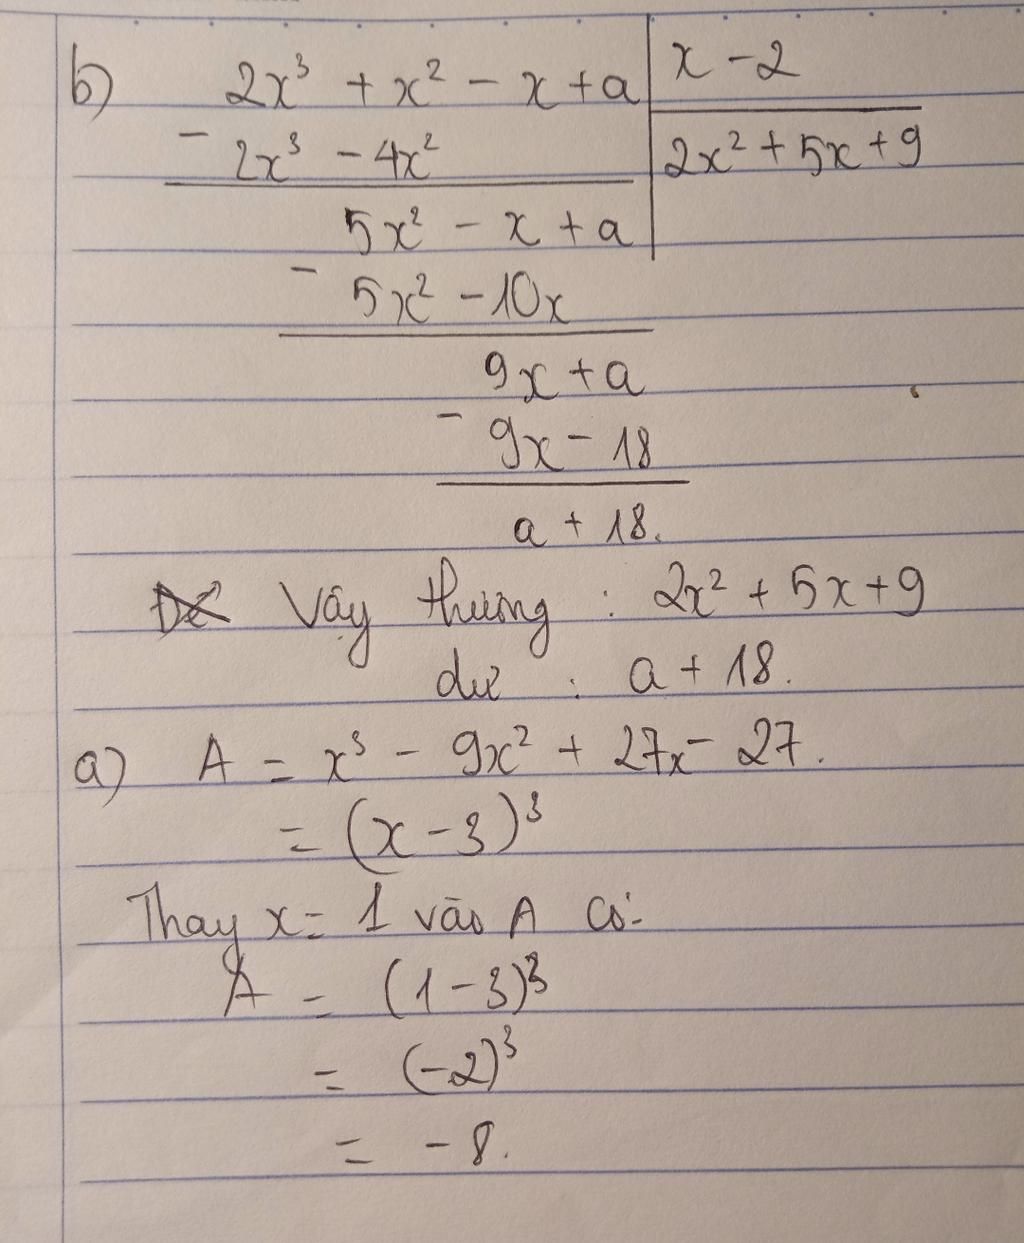 b) 2x³ + x² - x + a | x - 2
- 2x³ - 4x² | 2x² + 5x + 9
5x² - x + a
- 5x² - 10x
9x + a
- 9x - 18
a + 18.
Vậy thương : 2x² + 5x + 9
dư : a + 18.
a) A = x³ - 9x² + 27x - 27.
= (x - 3)³
Thay x = 1 vào A có:
A = (1 - 3)³
= (-2)³
= - 8.